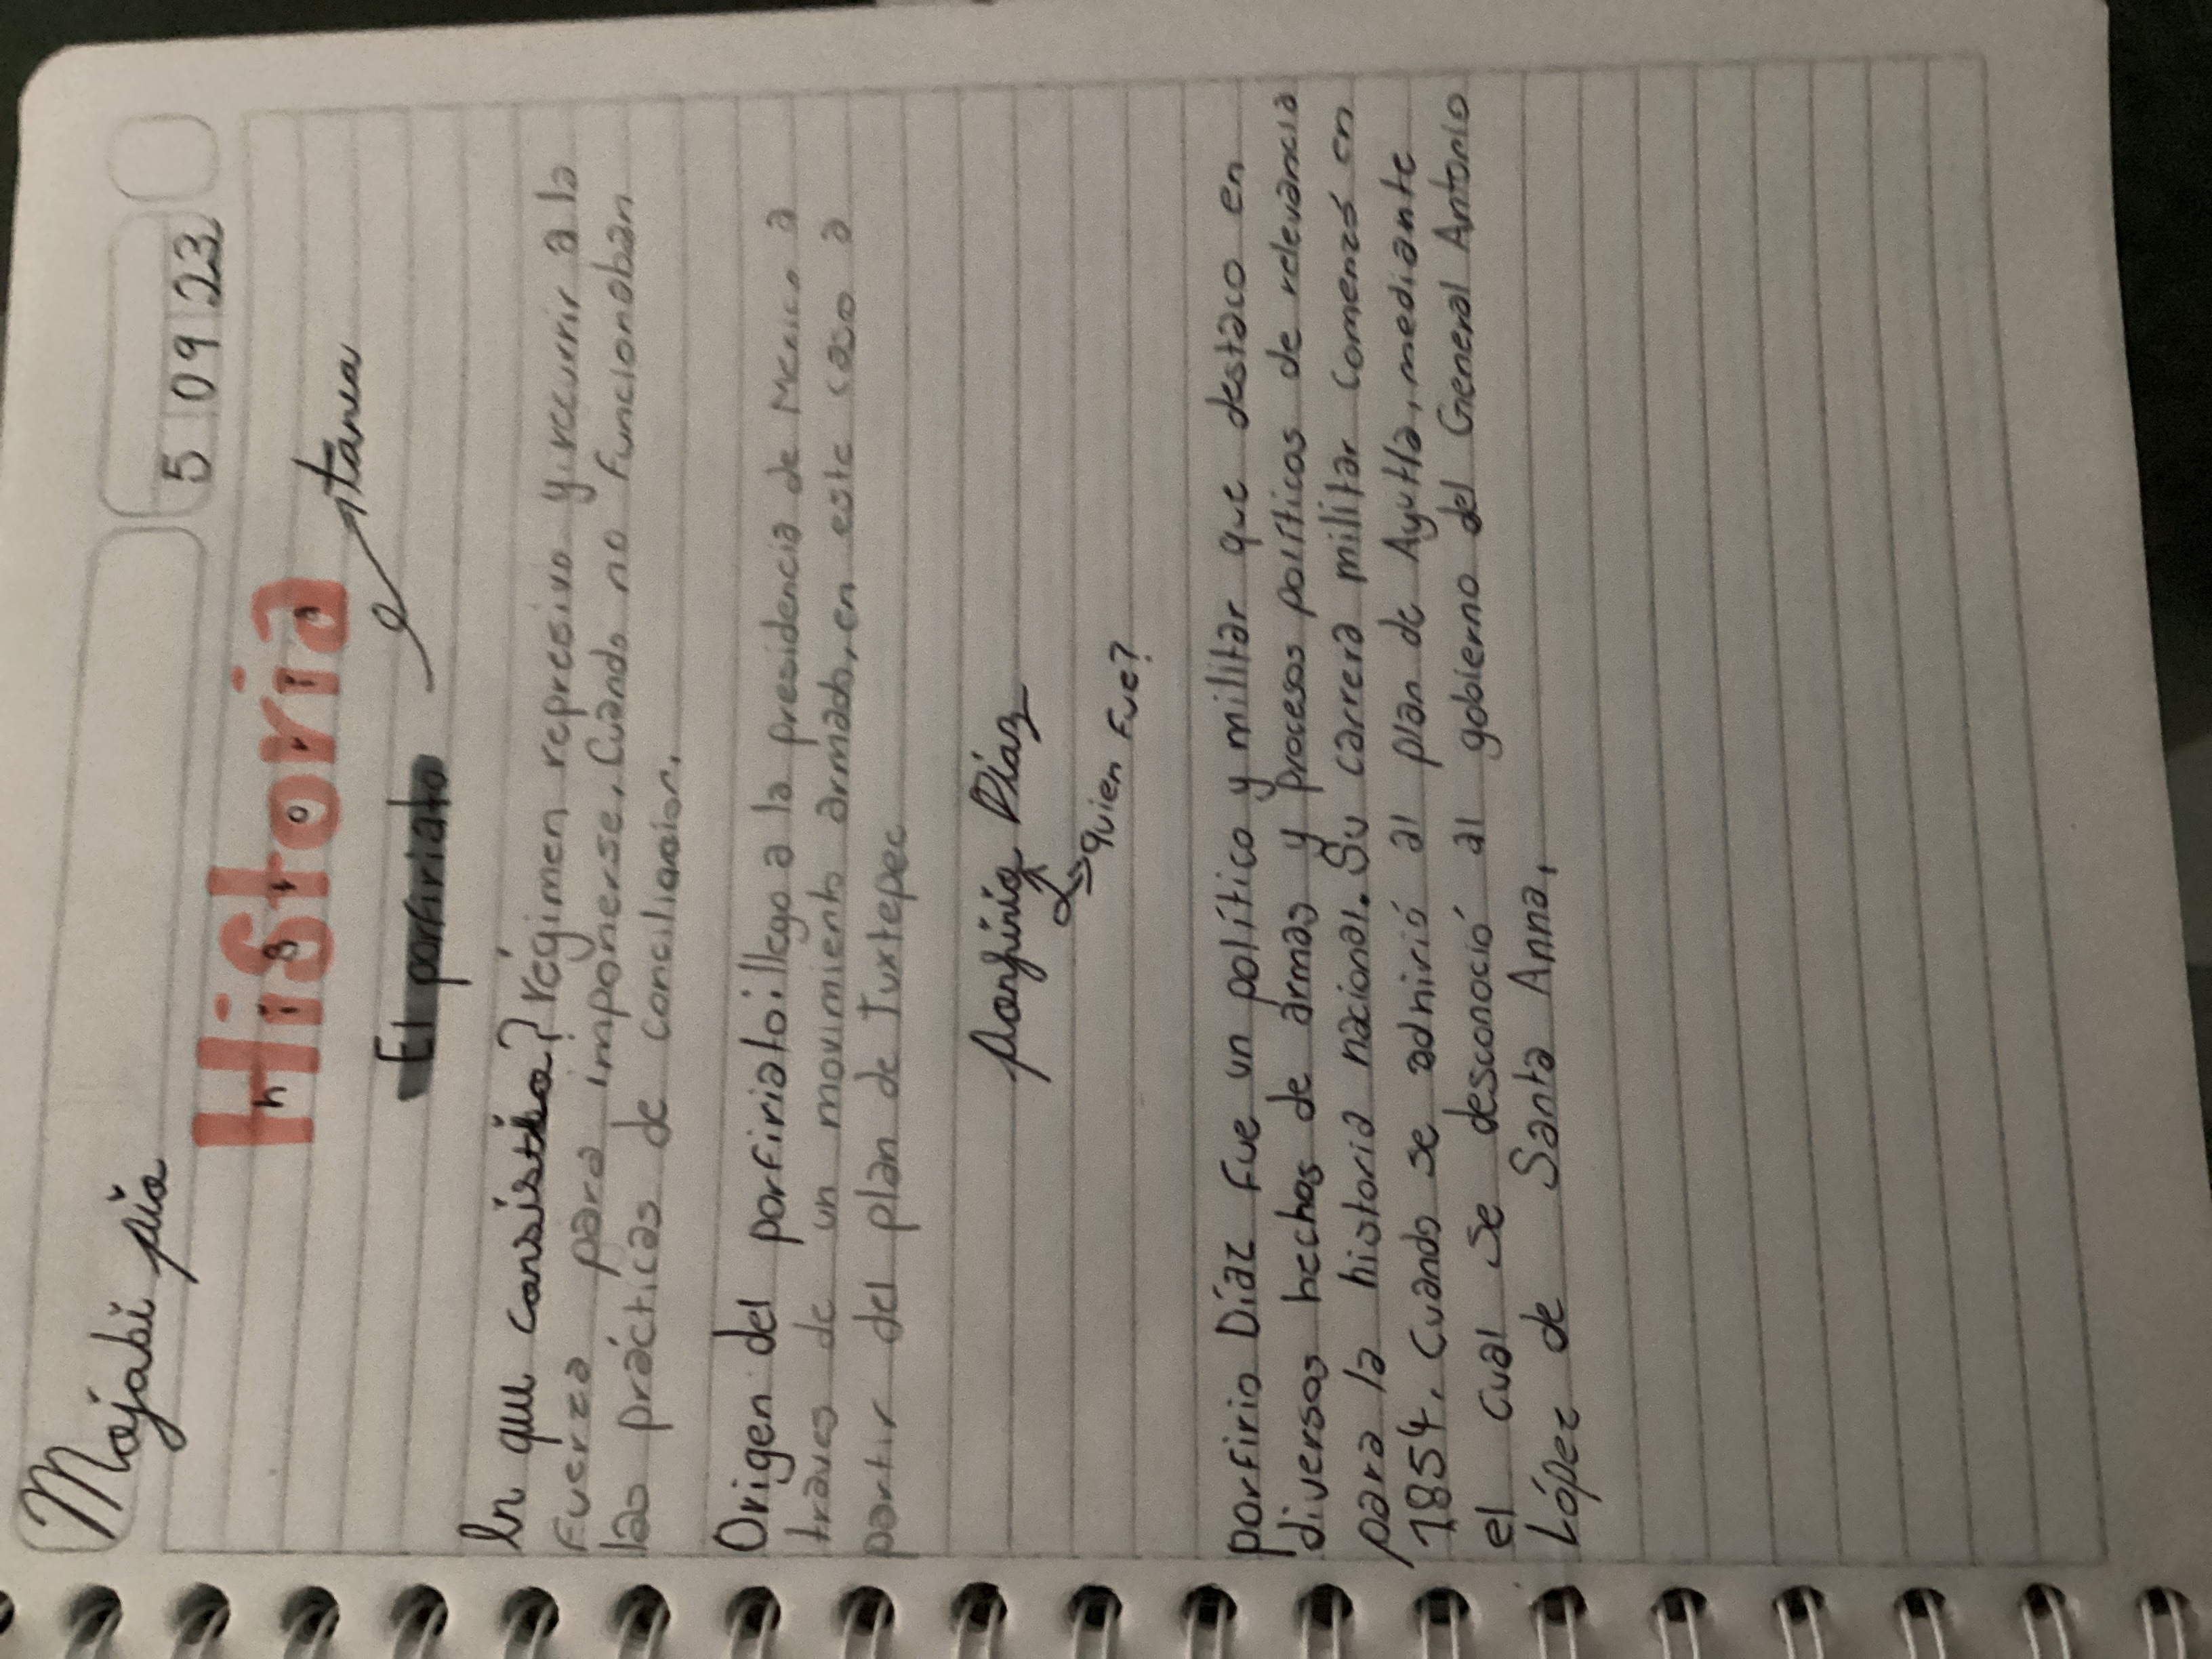 Majabi pia
5 09 23
Historia
historia
El porfiriato
tarea
En que consistia? régimen represivo y recurrir a la
fuerza para imponerse. Cuando no funcionaban
las prácticas de conciliacion.
Origen del porfiriato: llego a la presidencia de Mexico a
traves de un movimiento armado, en este caso a
partir del plan de Tuxtepec
porfirio Díaz
quien fue?
porfirio Díaz fue un político y militar que destaco en
diversos hechos de armas y procesos políticos de relevancia
para la historia nacional. Su carrera militar comenzó en
1854. Cuando se adhirió al plan de Ayutla, mediante
el cual se desconoció al gobierno del General Antonio
López de Santa Anna.